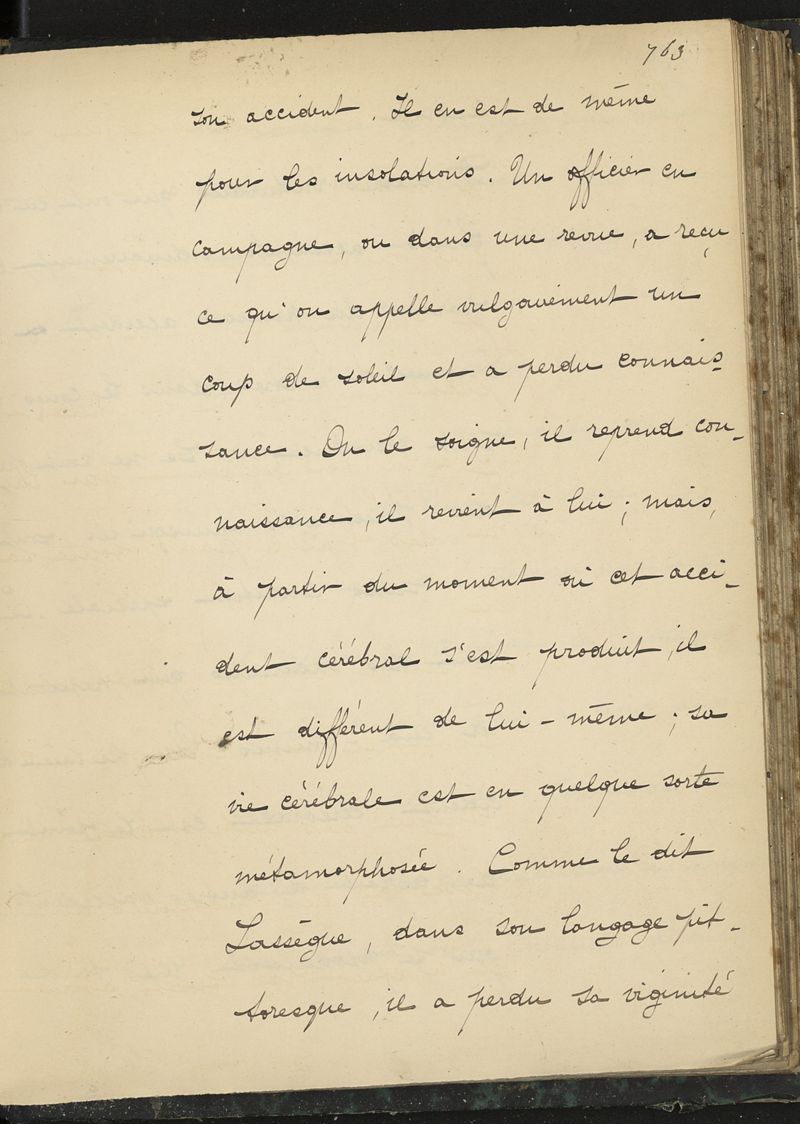 763
son accident. Il en est de même
pour les insolations. Un officier en
campagne, ou dans une revue, a reçu
ce qu'on appelle vulgairement un
coup de soleil et a perdu connais-
sance. On le soigne, il reprend con-
naissance, il revient à lui ; mais,
à partir du moment où cet acci-
dent cérébral s'est produit, il
est différent de lui-même ; sa
vie cérébrale est en quelque sorte
métamorphosée. Comme le dit
Lassègue, dans son langage pit-
toresque, il a perdu sa viginité